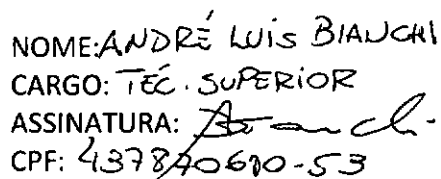 NOME: ANDRÉ LUIS BIANCHI
CARGO: TÉC. SUPERIOR
ASSINATURA:
CPF: